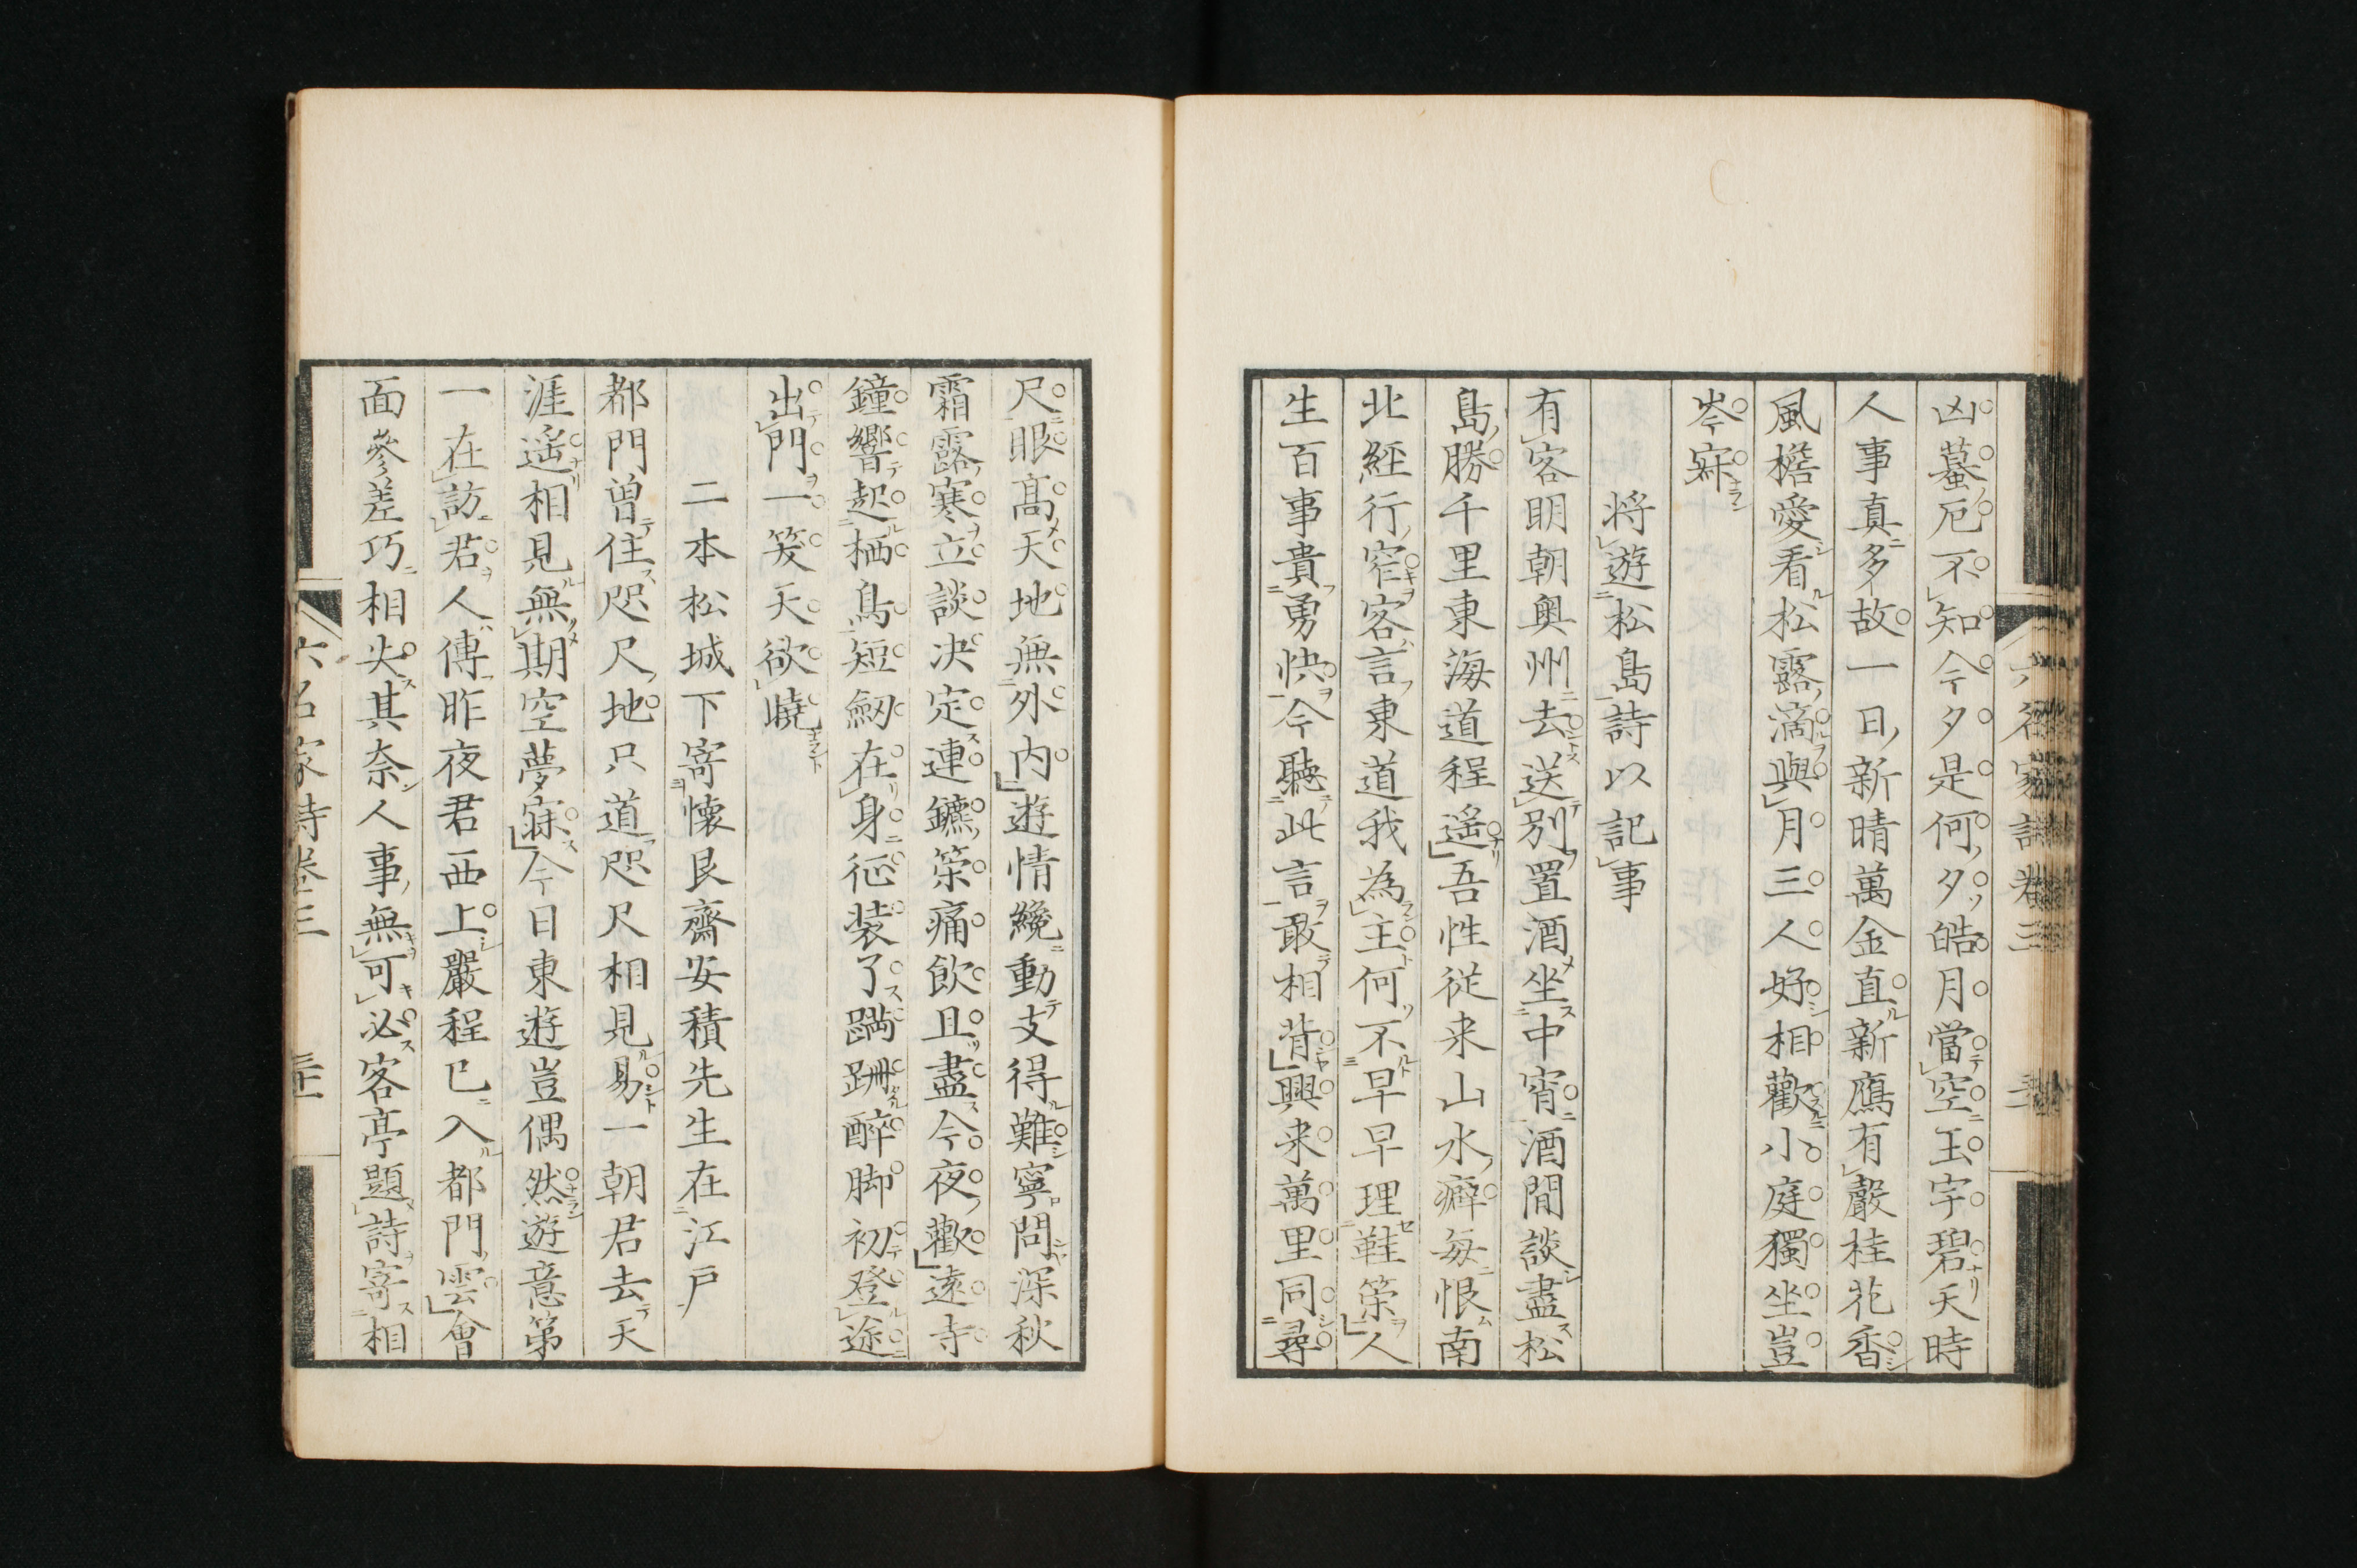 凶蟇厄不知今夕是何夕皓月當空玉宇碧天時
人事真多故一日新晴萬金直新鷹有聲桂花香
風檐愛看松露滴與月三人好相歡小庭獨坐豈
岑寂
將遊松島詩以記事
有客明朝奧州去送別置酒坐中宵酒間談盡松
島勝千里東海道程遙吾性従来山水癖每恨南
北經行窄客言東道我為主何不早早理鞋策人
生百事貴勇快今聽此言敢相背興来萬里同尋
尺眼高天地無外内遊情纔動支得難寧問深秋
霜露寒立談決定連鑣策痛飲且盡今夜歡遠寺
鐘響起栖鳥短劒在身征装了蹣跚醉脚初登途
出門一笑天欲曉
二本松城下寄懷艮齋安積先生在江戸
都門曽住咫尺地只道咫尺相見易一朝君去天
涯遥相見無期空夢寐今日東遊豈偶然遊意第
一在訪君人傳昨夜君西上嚴程已入都門雲會
面參差巧相失其奈人事無可必客亭題詩寄相
六名家詩卷三